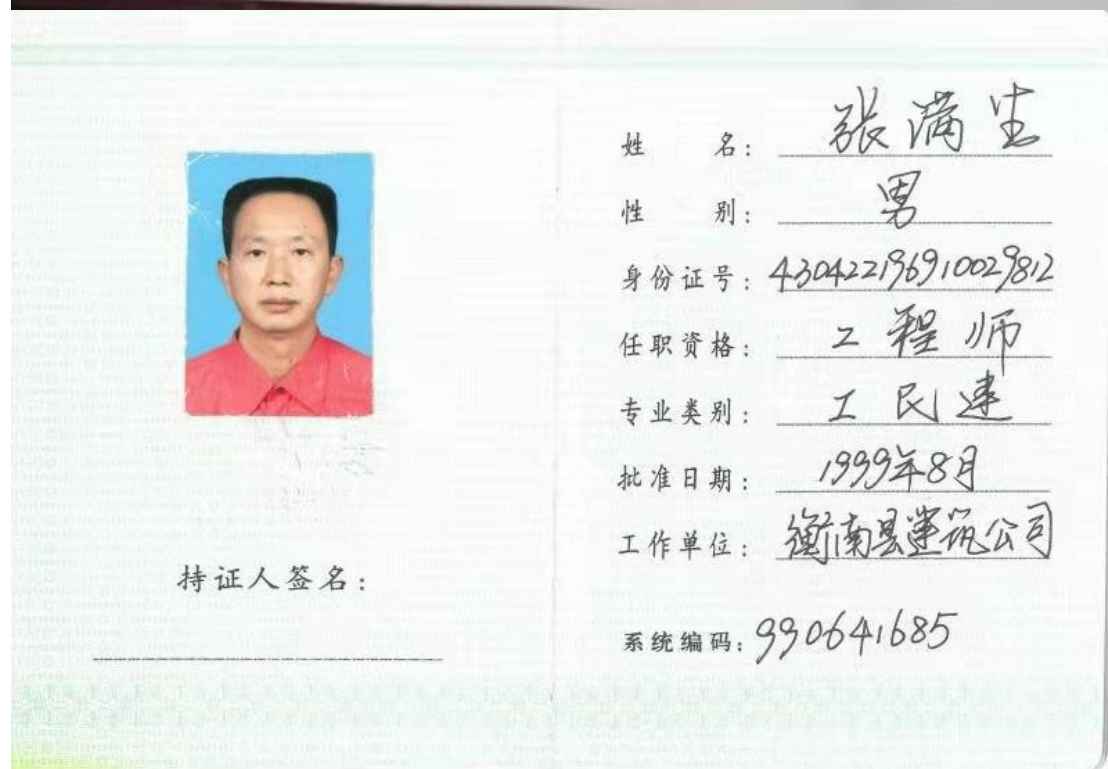 姓 名: 张满生
性 别: 男
身份证号: 430422196910029812
任职资格: 工程师
专业类别: 工民建
批准日期: 1999年8月
工作单位: 衡南县建筑公司
持证人签名:
系统编码: 990641685